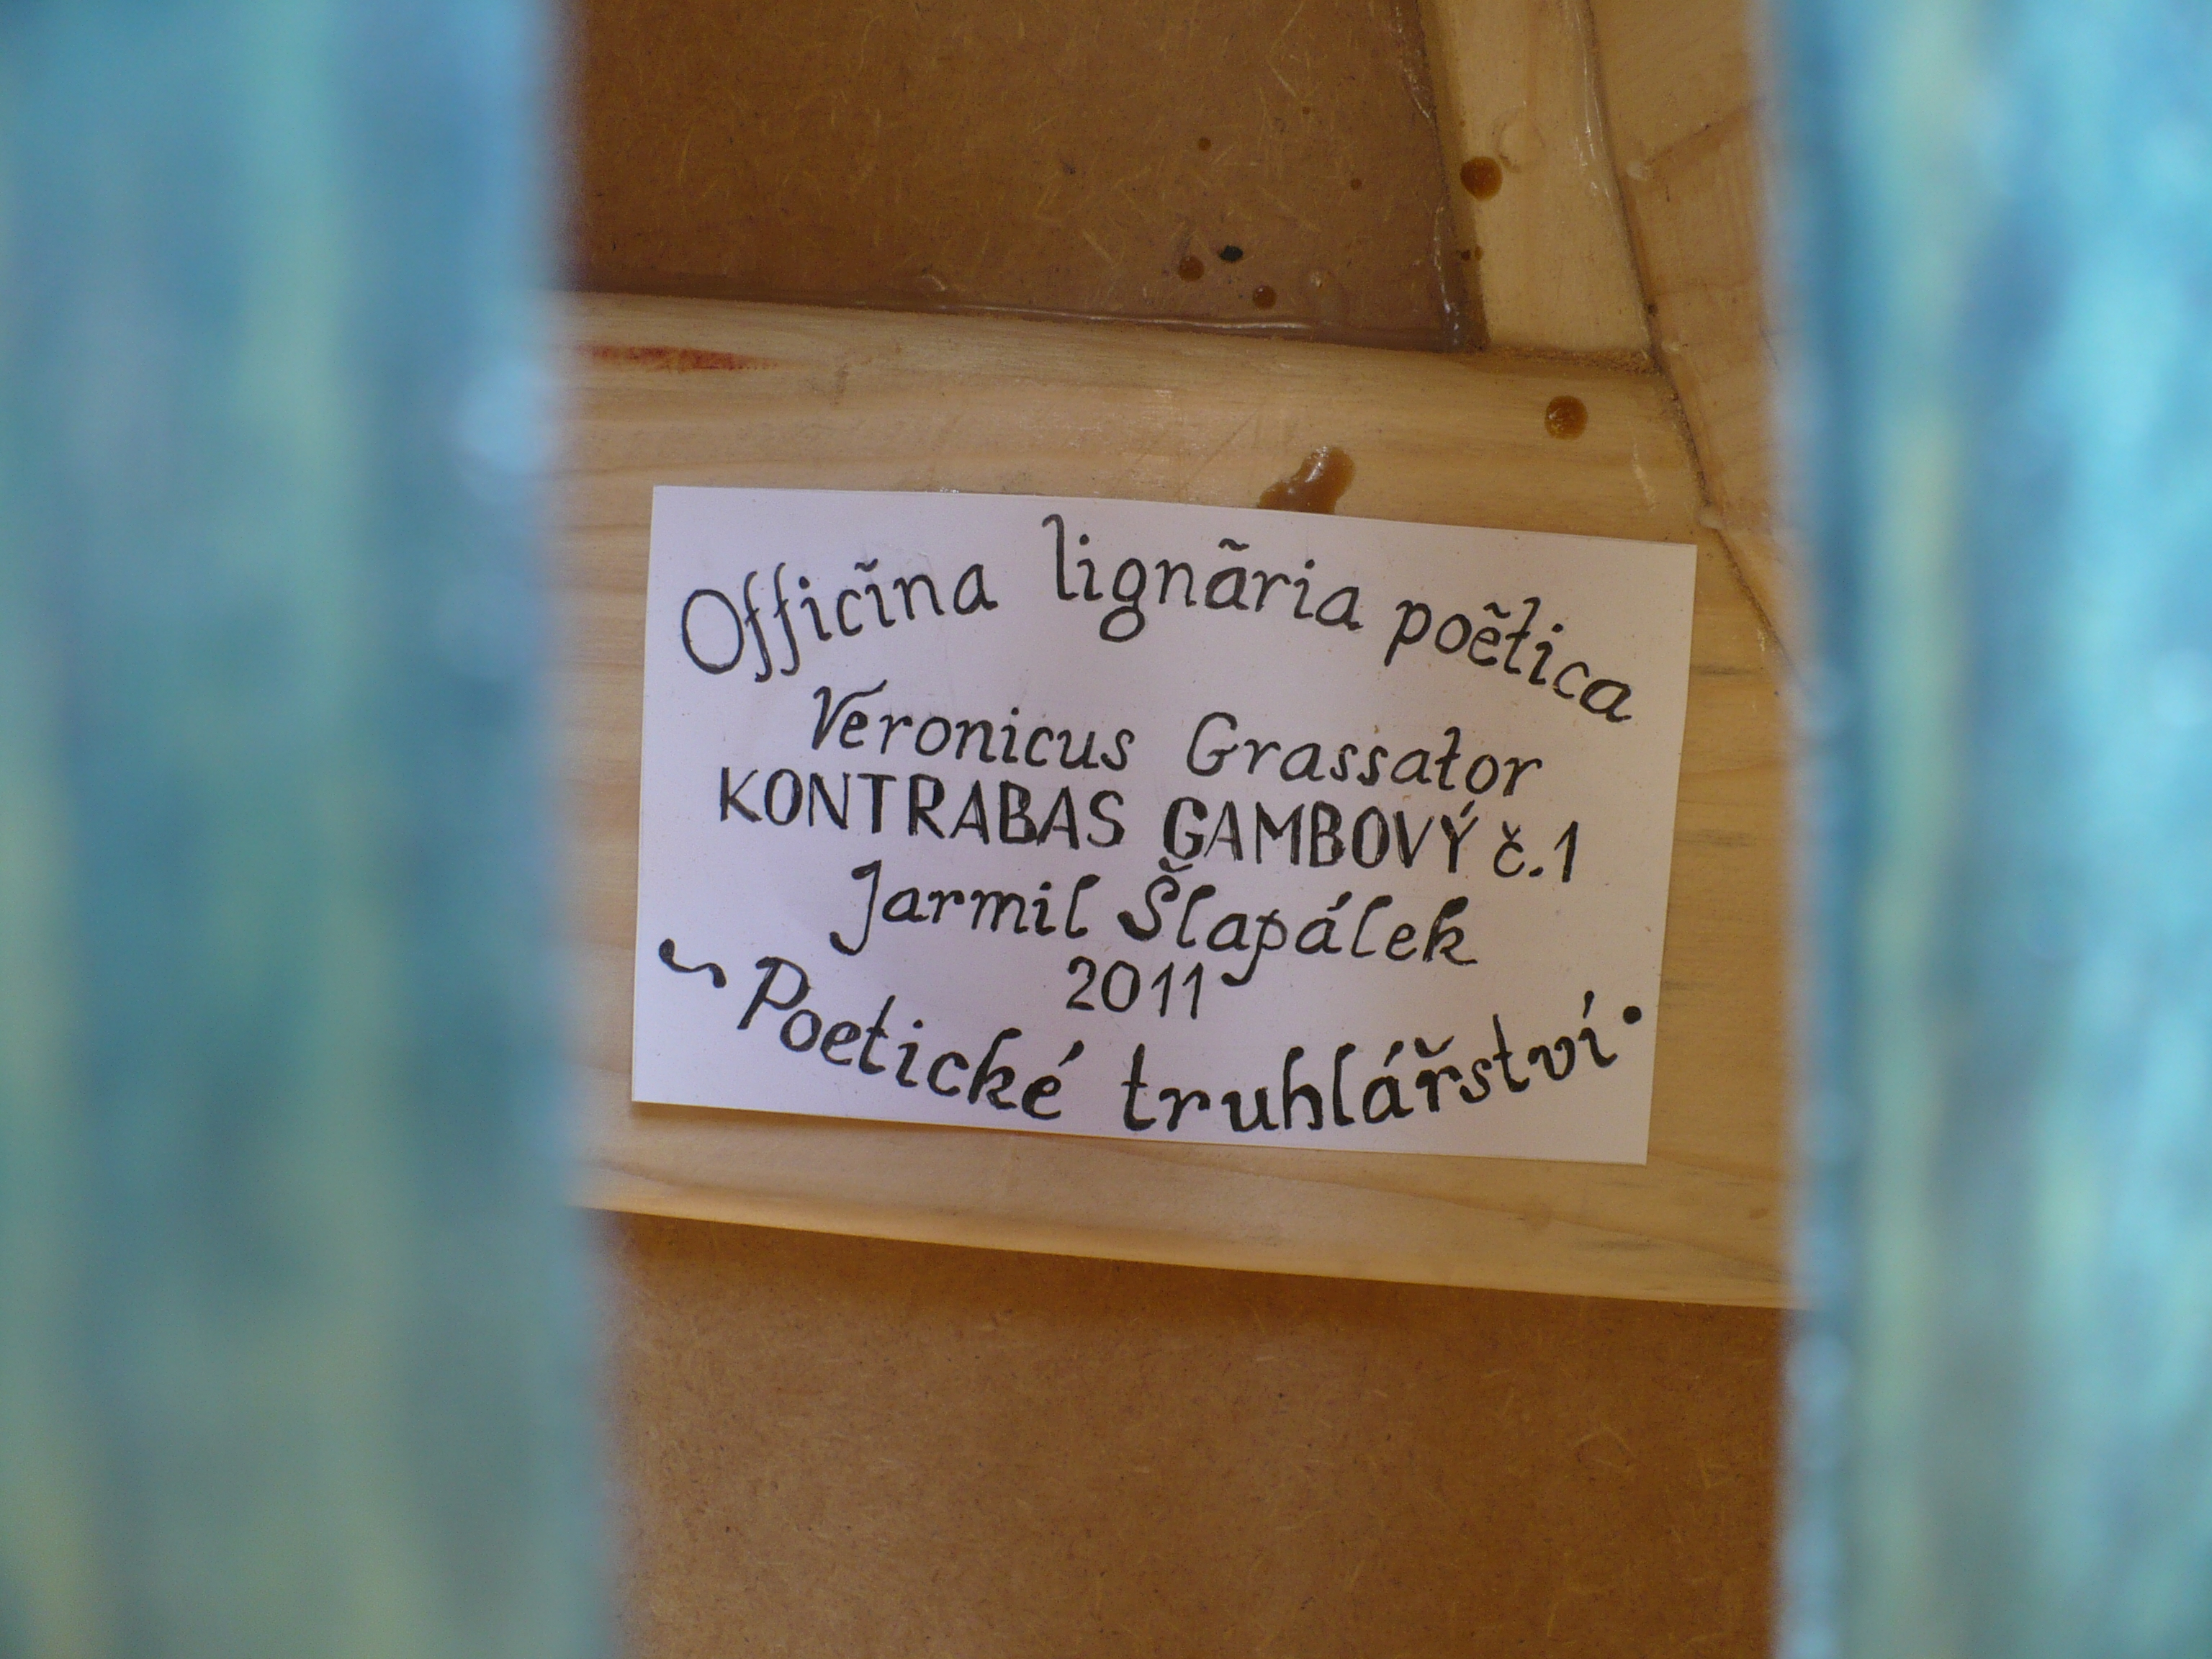 Officĩna lignãria poẽtica
Veronicus Grassator
KONTRABAS GAMBOVÝ č.1
Jarmil Šlapálek
2011
~ Poetické truhlářství •